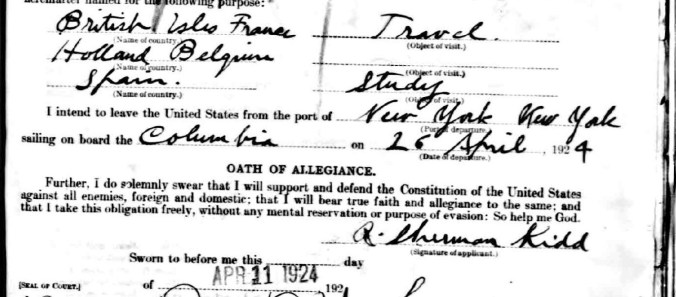 hereinafter named for the following purpose:
British Isles France Travel.
(Name of country.) (Object of visit.)
Holland Belgium
(Name of country.) (Object of visit.)
Spain. Study
(Name of country.) (Object of visit.)
I intend to leave the United States from the port of New York New York
(Port of departure.)
sailing on board the Columbia on 26 April, 1924
(Date of departure.)
OATH OF ALLEGIANCE.
Further, I do solemnly swear that I will support and defend the Constitution of the United States
against all enemies, foreign and domestic; that I will bear true faith and allegiance to the same; and
that I take this obligation freely, without any mental reservation or purpose of evasion: So help me God.
R. Sherman Kidd
(Signature of applicant.)
Sworn to before me this day
[SEAL OF COURT.] of APR 11 1924 192